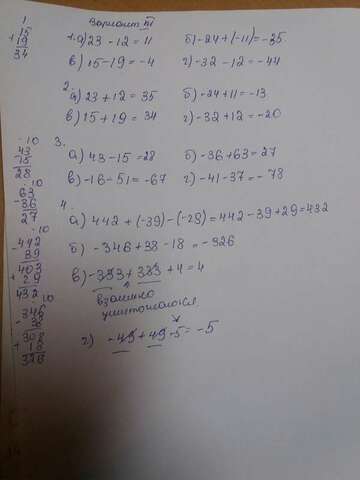 Вариант III
1. а) 23 - 12 = 11 б) -24 + (-11) = -35
в) 15 - 19 = -4 г) -32 - 12 = -44
2.
а) 23 + 12 = 35 б) -24 + 11 = -13
в) 15 + 19 = 34 г) -32 + 12 = -20
3.
а) 43 - 15 = 28 б) -36 + 63 = 27
в) -16 - 51 = -67 г) -41 - 37 = -78
4.
а) 442 + (-39) - (-29) = 442 - 39 + 29 = 432
б) -346 + 38 - 18 = -326
в) -333 + 333 + 4 = 4
взаимно
уничтожаются
г) -49 + 49 - 5 = -5
1
+15
19
34
10
-43
15
28
10
63
-36
27
10
-442
39
403
+29
432
10
-346
38
308
+18
326